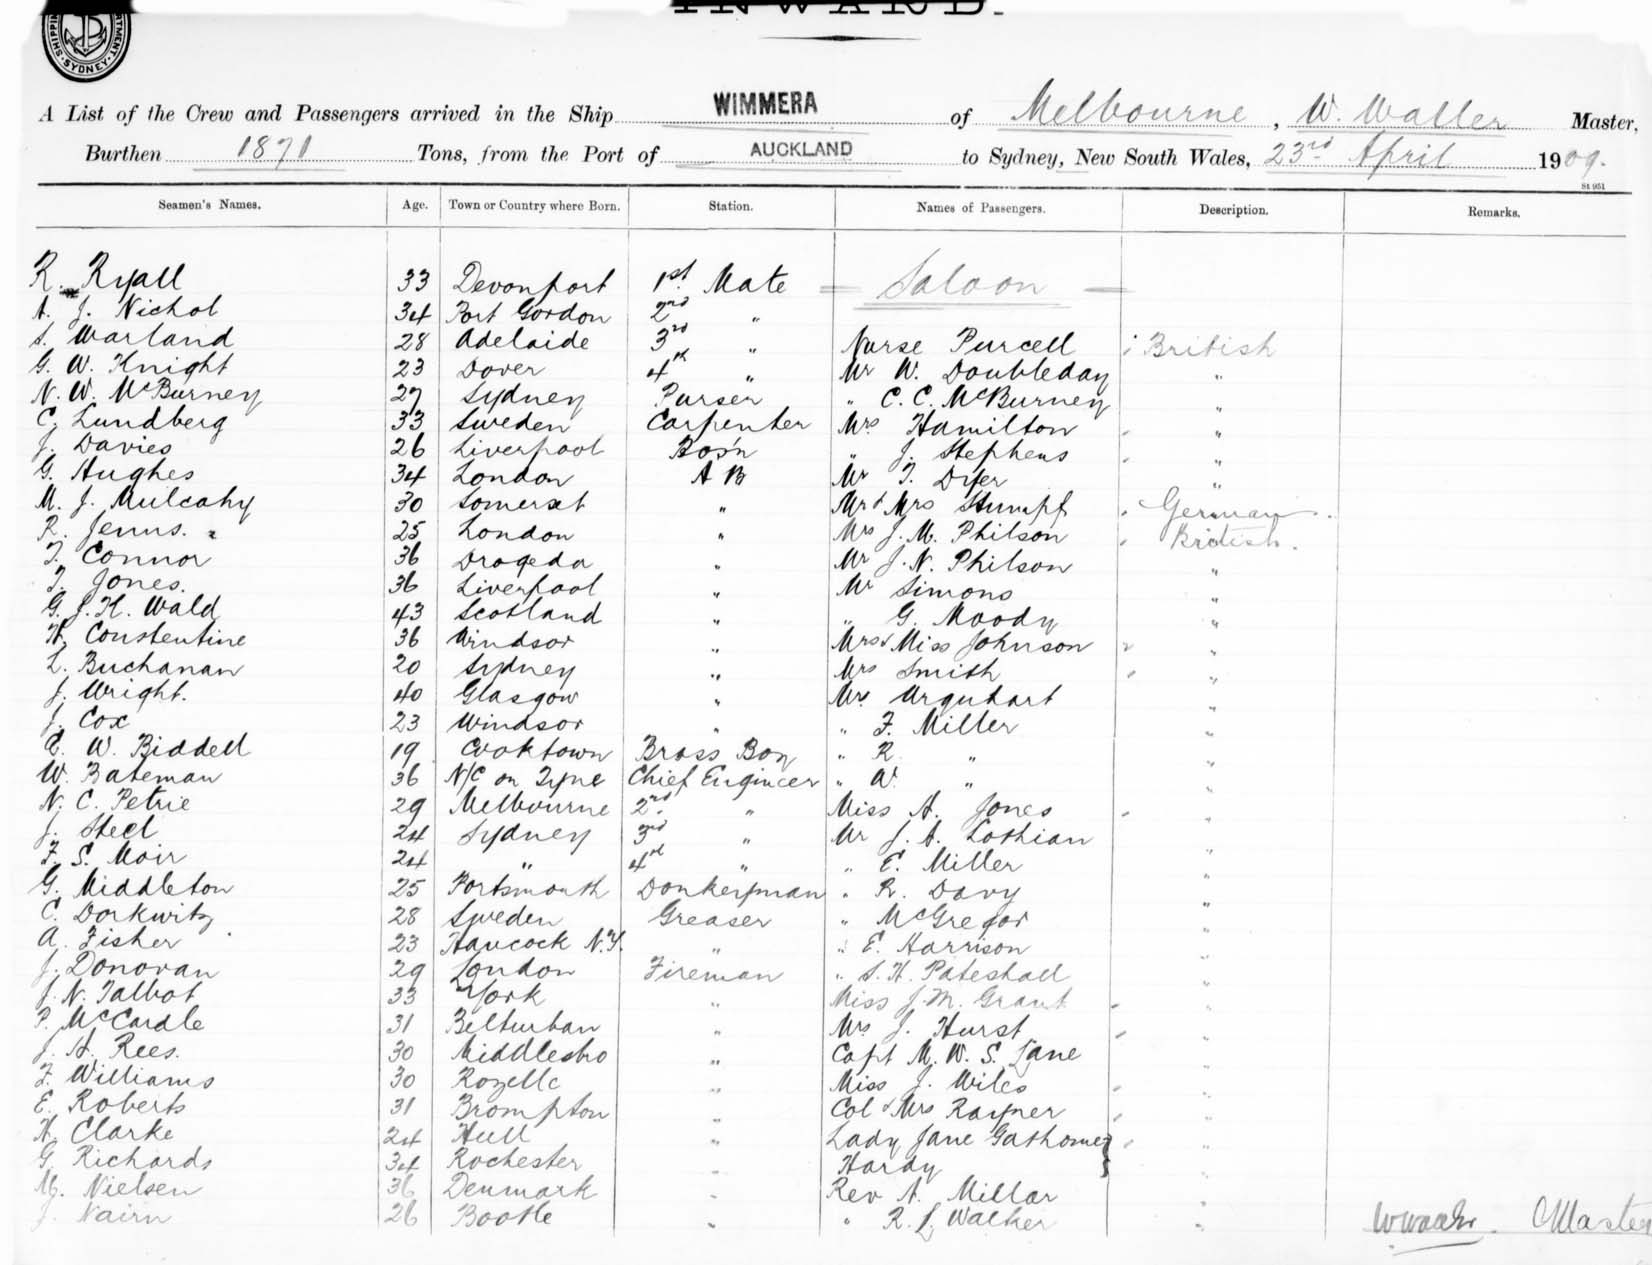 INWARD.
SHIPPING
SYDNEY
A List of the Crew and Passengers arrived in the Ship WIMMERA of Melbourne, W. Waller Master,
Burthen 1871 Tons, from the Port of AUCKLAND to Sydney, New South Wales, 23rd April 1909.
St 951
Seamen's Names. Age. Town or Country where Born. Station. Names of Passengers. Description. Remarks.
R. Ryall 33 Devonport 1st. Mate = Saloon =
A. J. Nichol 34 Port Gordon 2nd "
S. Warland 28 Adelaide 3rd " Nurse Purcell British
G. W. Knight 23 Dover 4th " Mr W. Doubleday "
N. W. McBurney 27 Sydney Purser " C. C. McBurney "
C. Lundberg 33 Sweden Carpenter Mrs Hamilton "
J. Davies 26 Liverpool Bos'n " J. Stephens "
G. Hughes 34 London A B Mr T. Dyer "
M. J. Mulcahy 30 Somerset " Mr & Mrs Stumpf German
R. Jenns. 25 London " Mrs J. M. Philson British.
T. Connor 36 Drogeda " Mr J. N. Philson "
T. Jones. 36 Liverpool " Mr Simons "
G. J. H. Wald 43 Scotland " " G. Moody "
H. Constentine 36 Windsor " Mrs & Miss Johnson "
L. Buchanan 20 Sydney " Mrs Smith "
J. Wright. 40 Glasgow " Mr Urquhart "
J. Cox 23 Windsor " " F. Miller "
W. Biddell 19 Cooktown Brass Boy " R. " "
W. Bateman 36 N/C on Tyne Chief Engineer " W. " "
N. C. Petrie 29 Melbourne 2nd " Miss A. Jones "
J. Steel 24 Sydney 3rd " Mr J. A. Lothian "
F. S. Moir 24 " 4th " " E. Miller "
G. Middleton 25 Portsmouth Donkeyman " R. Davy "
C. Dorkwitz 28 Sweden Greaser " McGregor "
A. Fisher 23 Hancock N.Y. " " E. Harrison "
J. Donovan 29 London Fireman " S. H. Pateshall "
J. N. Talbot 33 York " Miss J. M. Grant "
P. McCardle 31 Belturban " Mrs J. Hurst "
J. A. Rees. 30 Middlesbro " Capt M. W. S. Lane "
F. Williams 30 Rozelle " Miss J. Wiles "
E. Roberts 31 Brompton " Col & Mrs Rayner "
H. Clarke 24 Hull " Lady Jane Gathorne "
G. Richards 34 Rochester " Hardy "
M. Nielsen 36 Denmark " Rev A. Millar "
J. Nairn 26 Bootle " " R. L. Walker " Master